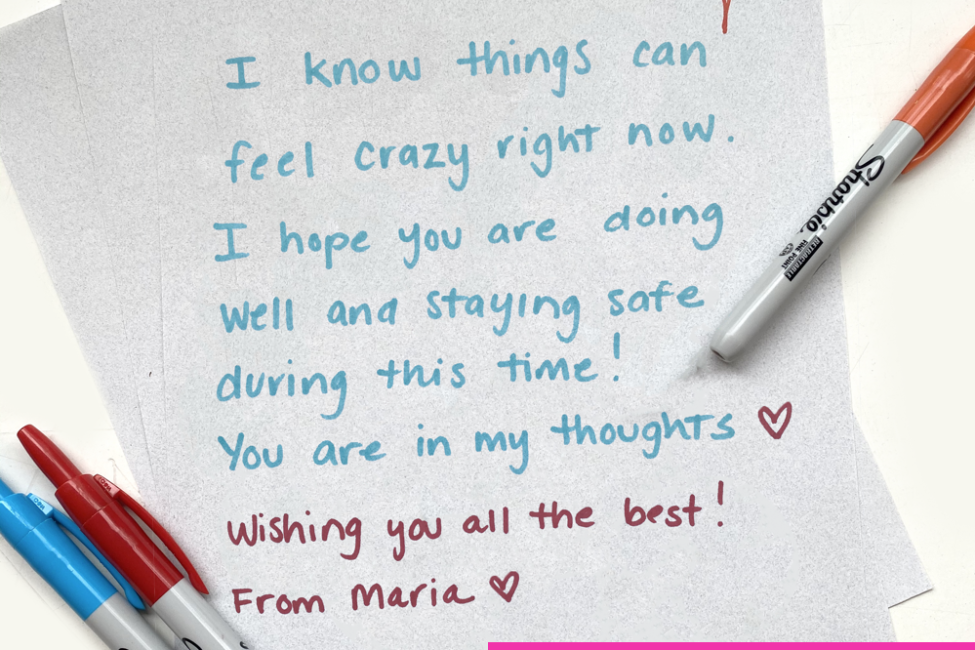 I know things can
feel crazy right now.
I hope you are doing
well and staying safe
during this time!
You are in my thoughts ♡
Wishing you all the best!
From Maria ♡
Sharpie
FINE POINT